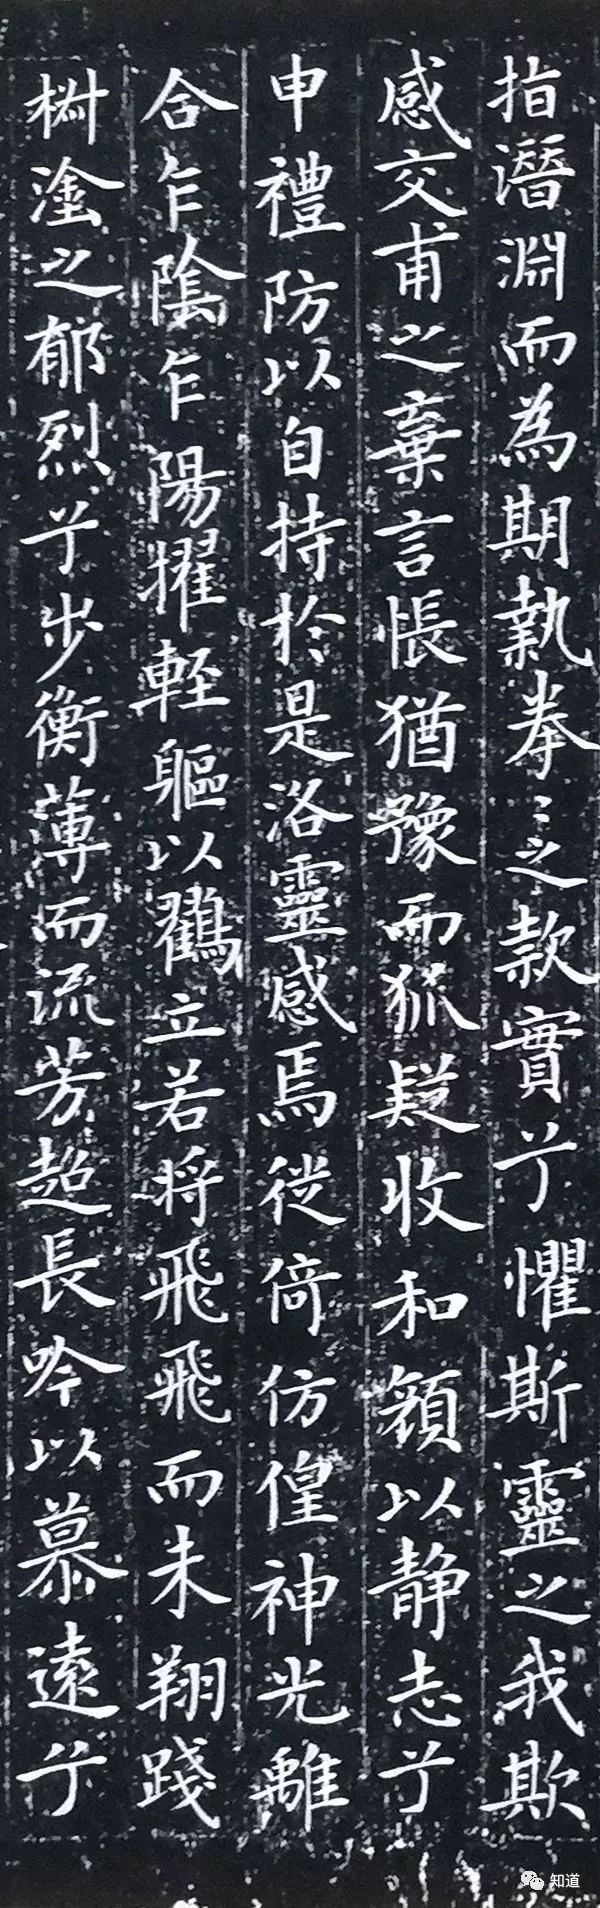 指潛淵而為期執拳〻之款實兮懼斯靈之我欺
感交甫之棄言悵猶豫而狐疑收和顏以静志兮
申禮防以自持於是洛靈感焉徙倚仿偟神光離
合乍陰乍陽擢輕軀以鶴立若將飛飛而未翔踐
椒塗之郁烈兮步衡薄而流芳超長吟以慕遠兮
知道